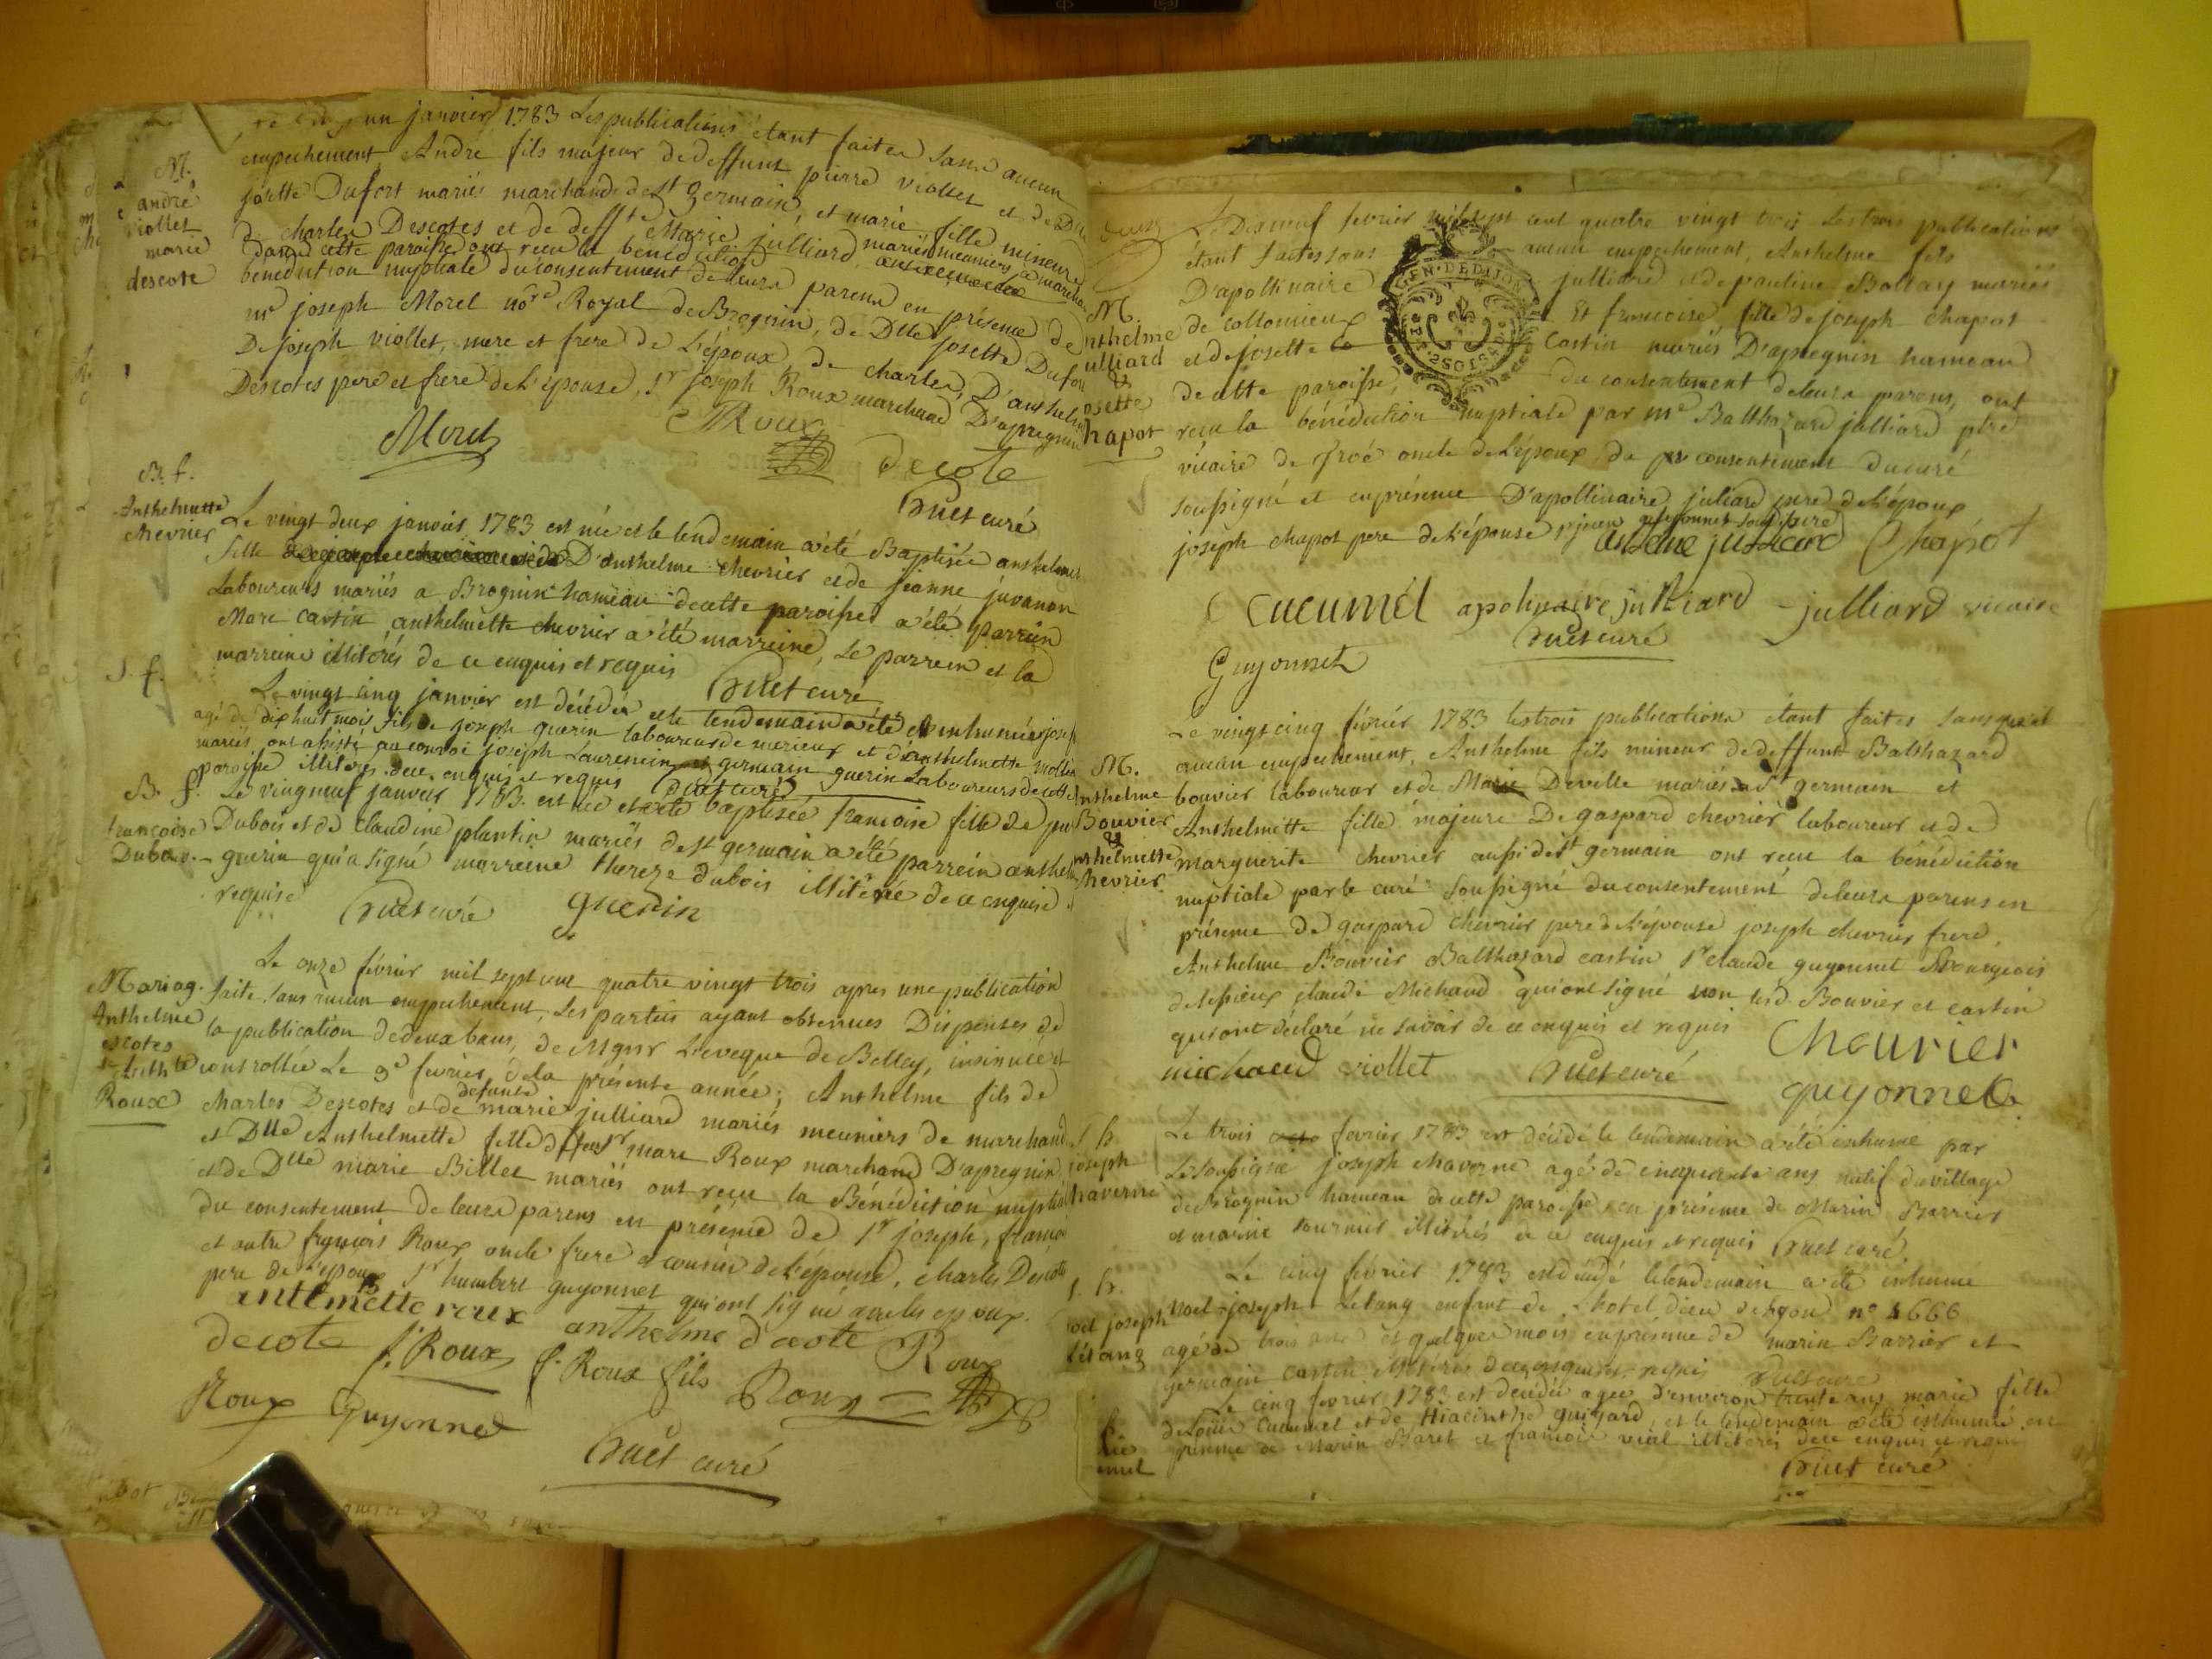 un janvier 1783 Les publications étant faites sans aucun
empechement André fils majeur de deffunt pierre viollet et de Dlle
josette Dufort mariés marchands de St germain, et marie fille mineure
de charles Descotes et de deffte Marie julliard mariés meuniers a marchan
dans cette paroisse ont recu la bénédiction
bénédiction nuptiale du consentement de leurs parens en présence de
mr joseph Morel nore Royal de Brognin, de Dlle josette Dufort
De joseph viollet, mere et frere de L'époux, de charles, D'anthelme
Descotes pere et frere de L'épouse, sr joseph Roux marchand D'apregnin
M.
andré
viollet
marie
descote
Morel
Roux
decote
huet curé
B. f.
Anthelmette
chevrier
Le vingt deux janvier 1783 est née et le lendemain a été Baptisée anthelmette
fille D'anthelme chevrier et de jeanne juvanon
Laboureurs mariés a Brognin hameau de cette paroisse a été parrein
Marc castin anthelmette chevrier a été marreine, Le parrein et la
marreine illiterés de ce enquis et requis huet curé
S. f.
Le vingt cinq janvier est décédé et le lendemain a été inhumé joseph
agé de dix huit mois fils de joseph guerin laboureur de merieux et d'anthelmette mollet
mariés, ont assisté au convoi joseph Laurencin et germain guerin Laboureurs de cette
paroisse illiterés de ce enquis et requis huet curé
B. f.
francoise
Dubois
Le vingneuf janvier 1783 est née et a été baptisée francoise fille de
Dubois et de claudine plantin mariés de st germain a été parrein anthelme
guerin qui a signé marreine thereze dubois illiterée de ce enquise
requise huet curé guerin
Mariag.
Anthelme
escotes
Anthte
Roux
Le onze février mil sept cent quatre vingt trois apres une publication
faite sans aucun empechement, Les parties ayant obtenues Dispenses de
la publication de deux bans, de Mgnr L'eveque de Belley, insinuée et
controllée Le 9e fevrier de la présente année; Anthelme fils de
charles Descotes et de defunte marie julliard mariés meuniers de marchand
et Dlle Anthelmette fille de sr marc Roux marchand D'apregnin
et de Dlle marie Billet mariés ont reçu la Bénédiction nuptiale
du consentement de leurs parens en présence de sr joseph, françois
et autre françois Roux oncle frere et cousin de L'épouse, charles Descotes
pere de L'époux sr humbert guyonnet qui ont signé avec les epoux.
antelmette roux
decote f. Roux anthelme decote Roux
f. Roux fils
Roux Guyonnet Roux
huet curé
Le Dixneuf fevrier mil sept cent quatre vingt trois Les trois publications
étant faites sans aucun empechement, Anthelme fils
D'apollinaire julliard et de pauline Ballay mariés
de collomieux Et francoise fille de joseph chapot
et de josette Castin mariés D'apregnin hameau
de cette paroisse, du consentement de leurs parens, ont
recu la bénédiction nuptiale par mre Balthazard julliard ptre
vicaire de oncle de L'époux du consentement du curé
soussigné et en présence D'apollinaire juliard pere de L'époux
joseph chapot pere de L'épouse
GEN. DE DIJON
M.
Anthelme
julliard
&
josette
Chapot
antelme julliard Chapot
Cucumel apolinaire julliard julliard vicaire
huet curé
Guyonnet
M.
Anthelme
Bouvier
&
Anthelmette
chevrier
Le vingt cinq février 1783 les trois publications étant faites sans qu'il
aucun empechement, Anthelme fils mineur de deffunt Balthazard
bouvier laboureur et de Marie Deville mariés a St germain et
Anthelmette fille majeure De gaspard chevrier laboureur et de
marguerite chevrier aussi de st germain ont recu la bénédiction
nuptiale par le curé soussigné du consentement de leurs parens en
présence de gaspard chevrier pere de L'épouse joseph chevrier frere,
Anthelme Bouvier Balthazard castin sr claude guyonnet Bourgeois
de claude Michaud qui ont signé non lesd. Bouvier et castin
qui ont déclaré ne savoir de ce enquis et requis
Cheurier
michaud viollet huet curé
guyonnet
S. h.
joseph
chaverne
Le trois fevrier 1783 est décédé le lendemain a été inhumé par
Le soussigné joseph chaverne agé de cinquante ans natif du village
de Brognin hameau de cette paroisse en présence de Marin Barrier
et marie tournier illiterés de ce enquis et requis huet curé
S. h.
noel joseph
Létang
Le cinq février 1783 est décédé le lendemain a été inhumé
noel joseph Letang enfant de L'hotel dieu de Lyon no 4666
agé de trois ans et quelques mois en présence de marin Barrier et
germain castin illiterés de ce enquis et requis huet curé
Le cinq fevrier 1783 est décédée agée d'environ trente ans marie fille
de Louis Cucumel et de Hiacinthe guigard, et le lendemain a été inhumée en
présence de Marin Baret et francois vial illiterés de ce enquis et requis
huet curé